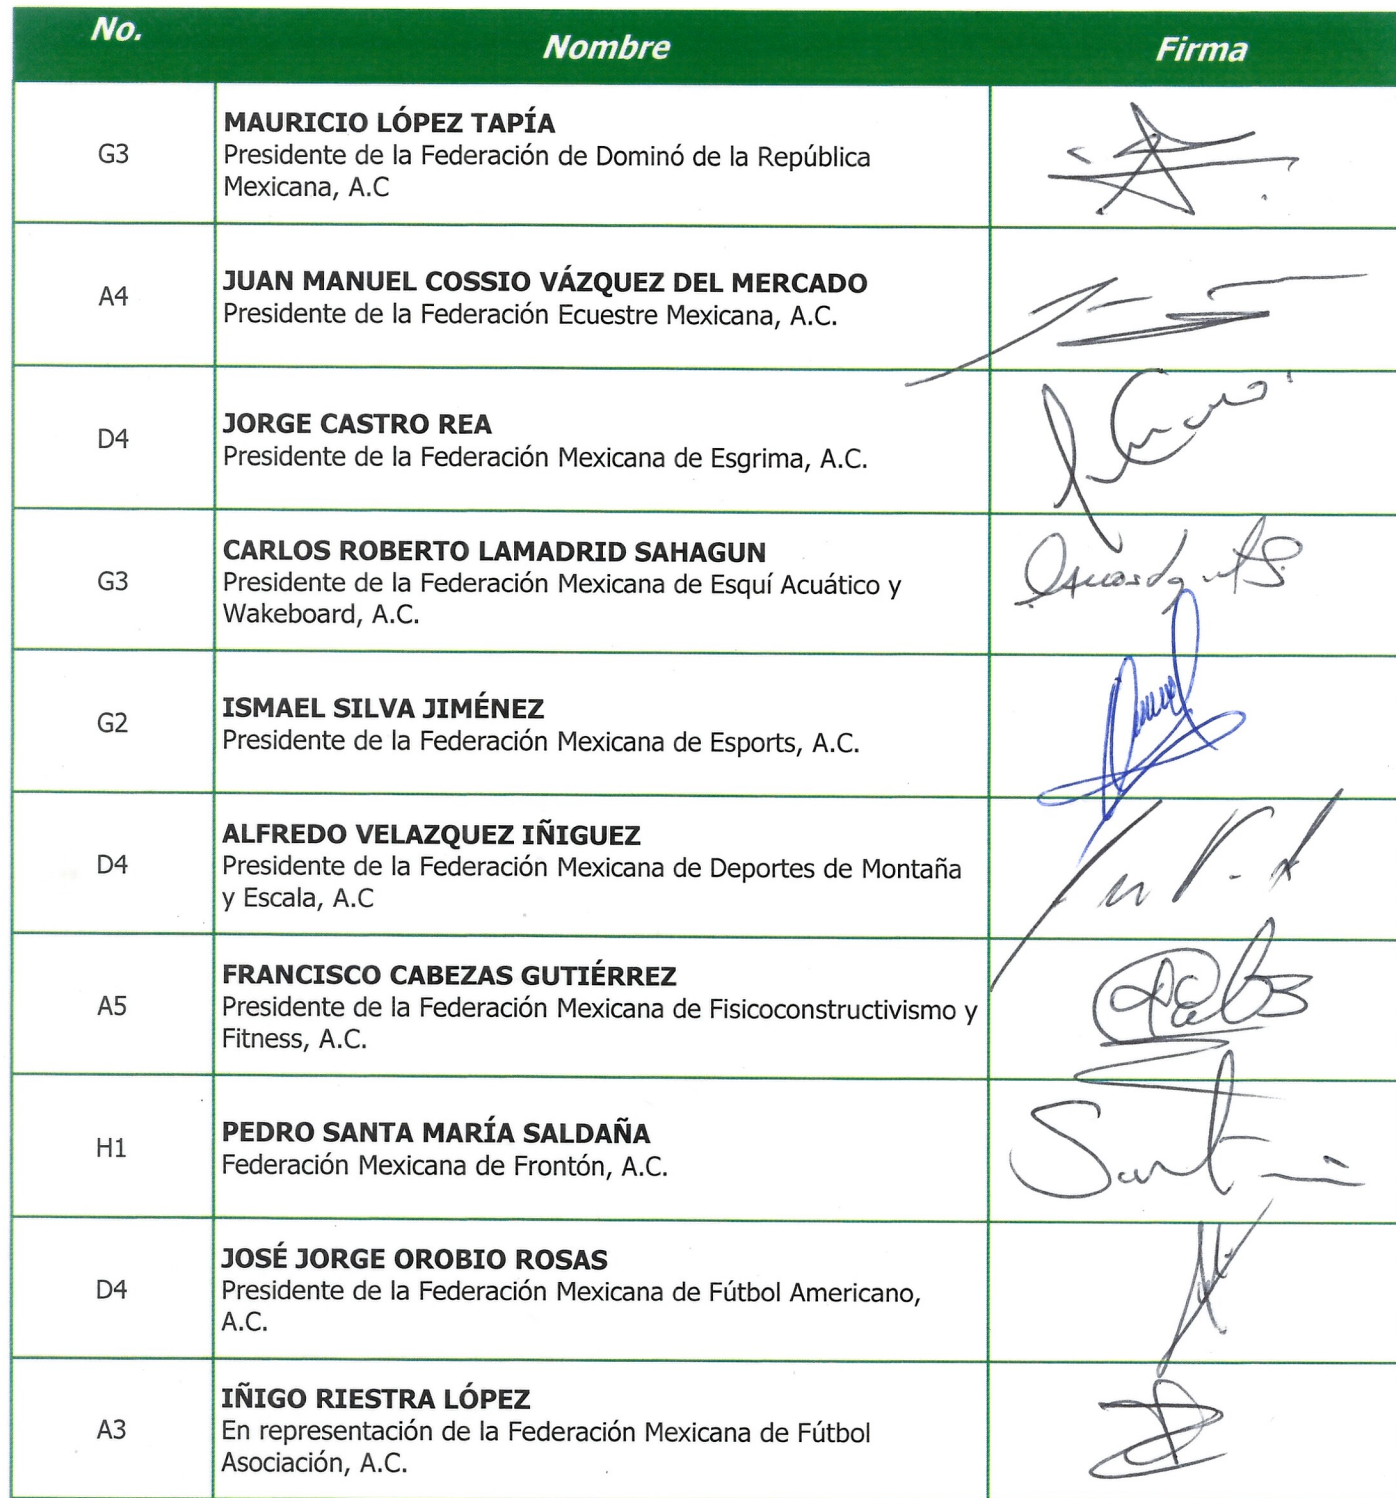 No.
Nombre
Firma
G3
MAURICIO LÓPEZ TAPÍA
Presidente de la Federación de Dominó de la República
Mexicana, A.C
A4
JUAN MANUEL COSSIO VÁZQUEZ DEL MERCADO
Presidente de la Federación Ecuestre Mexicana, A.C.
D4
JORGE CASTRO REA
Presidente de la Federación Mexicana de Esgrima, A.C.
G3
CARLOS ROBERTO LAMADRID SAHAGUN
Presidente de la Federación Mexicana de Esquí Acuático y
Wakeboard, A.C.
G2
ISMAEL SILVA JIMÉNEZ
Presidente de la Federación Mexicana de Esports, A.C.
D4
ALFREDO VELAZQUEZ IÑIGUEZ
Presidente de la Federación Mexicana de Deportes de Montaña
y Escala, A.C
A5
FRANCISCO CABEZAS GUTIÉRREZ
Presidente de la Federación Mexicana de Fisicoconstructivismo y
Fitness, A.C.
H1
PEDRO SANTA MARÍA SALDAÑA
Federación Mexicana de Frontón, A.C.
D4
JOSÉ JORGE OROBIO ROSAS
Presidente de la Federación Mexicana de Fútbol Americano,
A.C.
A3
IÑIGO RIESTRA LÓPEZ
En representación de la Federación Mexicana de Fútbol
Asociación, A.C.